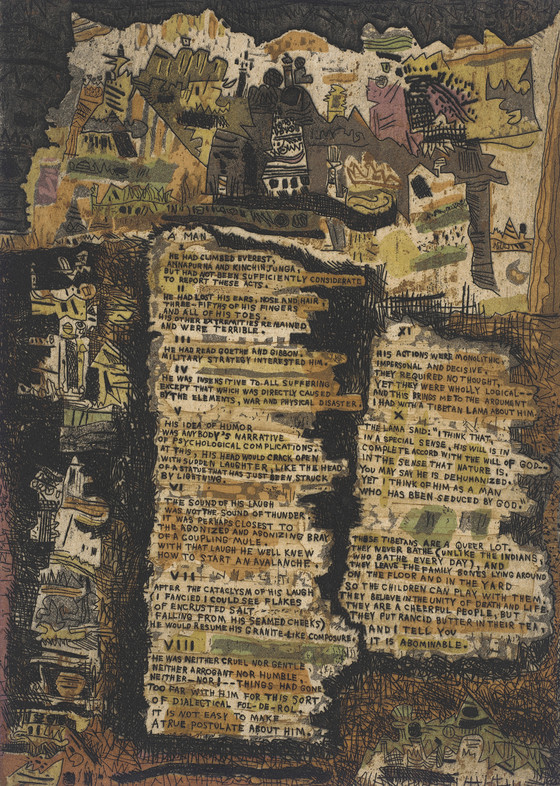 A MAN
HE HAD CLIMBED EVEREST,
ANNAPURNA AND KINCHINJUNGA,
BUT HAD NOT BEEN SUFFICIENTLY CONSIDERATE
TO REPORT THESE ACTS.
HE HAD LOST HIS EARS, NOSE AND HAIR
THREE-FIFTHS OF HIS FINGERS
AND ALL OF HIS TOES.
HIS OTHER EXTREMITIES REMAINED
AND WERE TERRIBLE.
III
HE HAD READ GOETHE AND GIBBON.
MILITARY STRATEGY INTERESTED HIM.
IV
HE WAS INSENSITIVE TO ALL SUFFERING
EXCEPT THAT WHICH WAS DIRECTLY CAUSED
BY THE ELEMENTS, WAR AND PHYSICAL DISASTER.
V
HIS IDEA OF HUMOR
WAS ANYBODY'S NARRATIVE
OF PSYCHOLOGICAL COMPLICATIONS.
AT THIS, HIS HEAD WOULD CRACK OPEN
WITH SUDDEN LAUGHTER, LIKE THE HEAD
OF A STATUE THAT HAS JUST BEEN STRUCK
BY LIGHTNING.
VI
THE SOUND OF HIS LAUGH
WAS NOT THE SOUND OF THUNDER
IT WAS PERHAPS CLOSEST TO
THE AGONIZED AND AGONIZING BRAY
OF A COUPLING MULE.
WITH THAT LAUGH HE WELL KNEW
HOW TO START AN AVALANCHE
VII
AFTER THE CATACLYSM OF HIS LAUGH
I FANCIED I COULD SEE FLAKES
OF ENCRUSTED SALT
FALLING FROM HIS SEAMED CHEEKS)
HE WOULD RESUME HIS GRANITE-LIKE COMPOSURE.
VIII
HE WAS NEITHER CRUEL NOR GENTLE
NEITHER ARROGANT NOR HUMBLE
NEITHER--NOR!--THINGS HAD GONE
TOO FAR WITH HIM FOR THIS SORT
OF DIALECTICAL FOL-DE-ROL.
IT IS NOT EASY TO MAKE
A TRUE POSTULATE ABOUT HIM.
XI
HIS ACTIONS WERE MONOLITHIC,
IMPERSONAL AND DECISIVE.
THEY REQUIRED NO THOUGHT,
YET THEY WERE WHOLLY LOGICAL--
AND THIS BRINGS ME TO THE ARGUMENT
I HAD WITH A TIBETAN LAMA ABOUT HIM.
X
THE LAMA SAID: "I THINK THAT,
IN A SPECIAL SENSE, HIS WILL IS IN
COMPLETE ACCORD WITH THE WILL OF GOD--
IN THE SENSE THAT NATURE IS.
YOU MAY SAY HE IS DEHUMANIZED,
YET I THINK OF HIM AS A MAN
WHO HAS BEEN SEDUCED BY GOD.
THESE TIBETANS ARE A QUEER LOT.
THEY NEVER BATHE (UNLIKE THE INDIANS
WHO BATHE EVERY DAY), AND
THEY LEAVE THE FAMILY BONES LYING AROUND
ON THE FLOOR AND IN THE YARD
SO THE CHILDREN CAN PLAY WITH THEM.
THEY BELIEVE IN THE UNITY OF DEATH AND LIFE
THEY ARE A CHEERFUL PEOPLE, BUT
THEY PUT RANCID BUTTER IN THEIR TEA
AND I TELL YOU
IT IS ABOMINABLE.